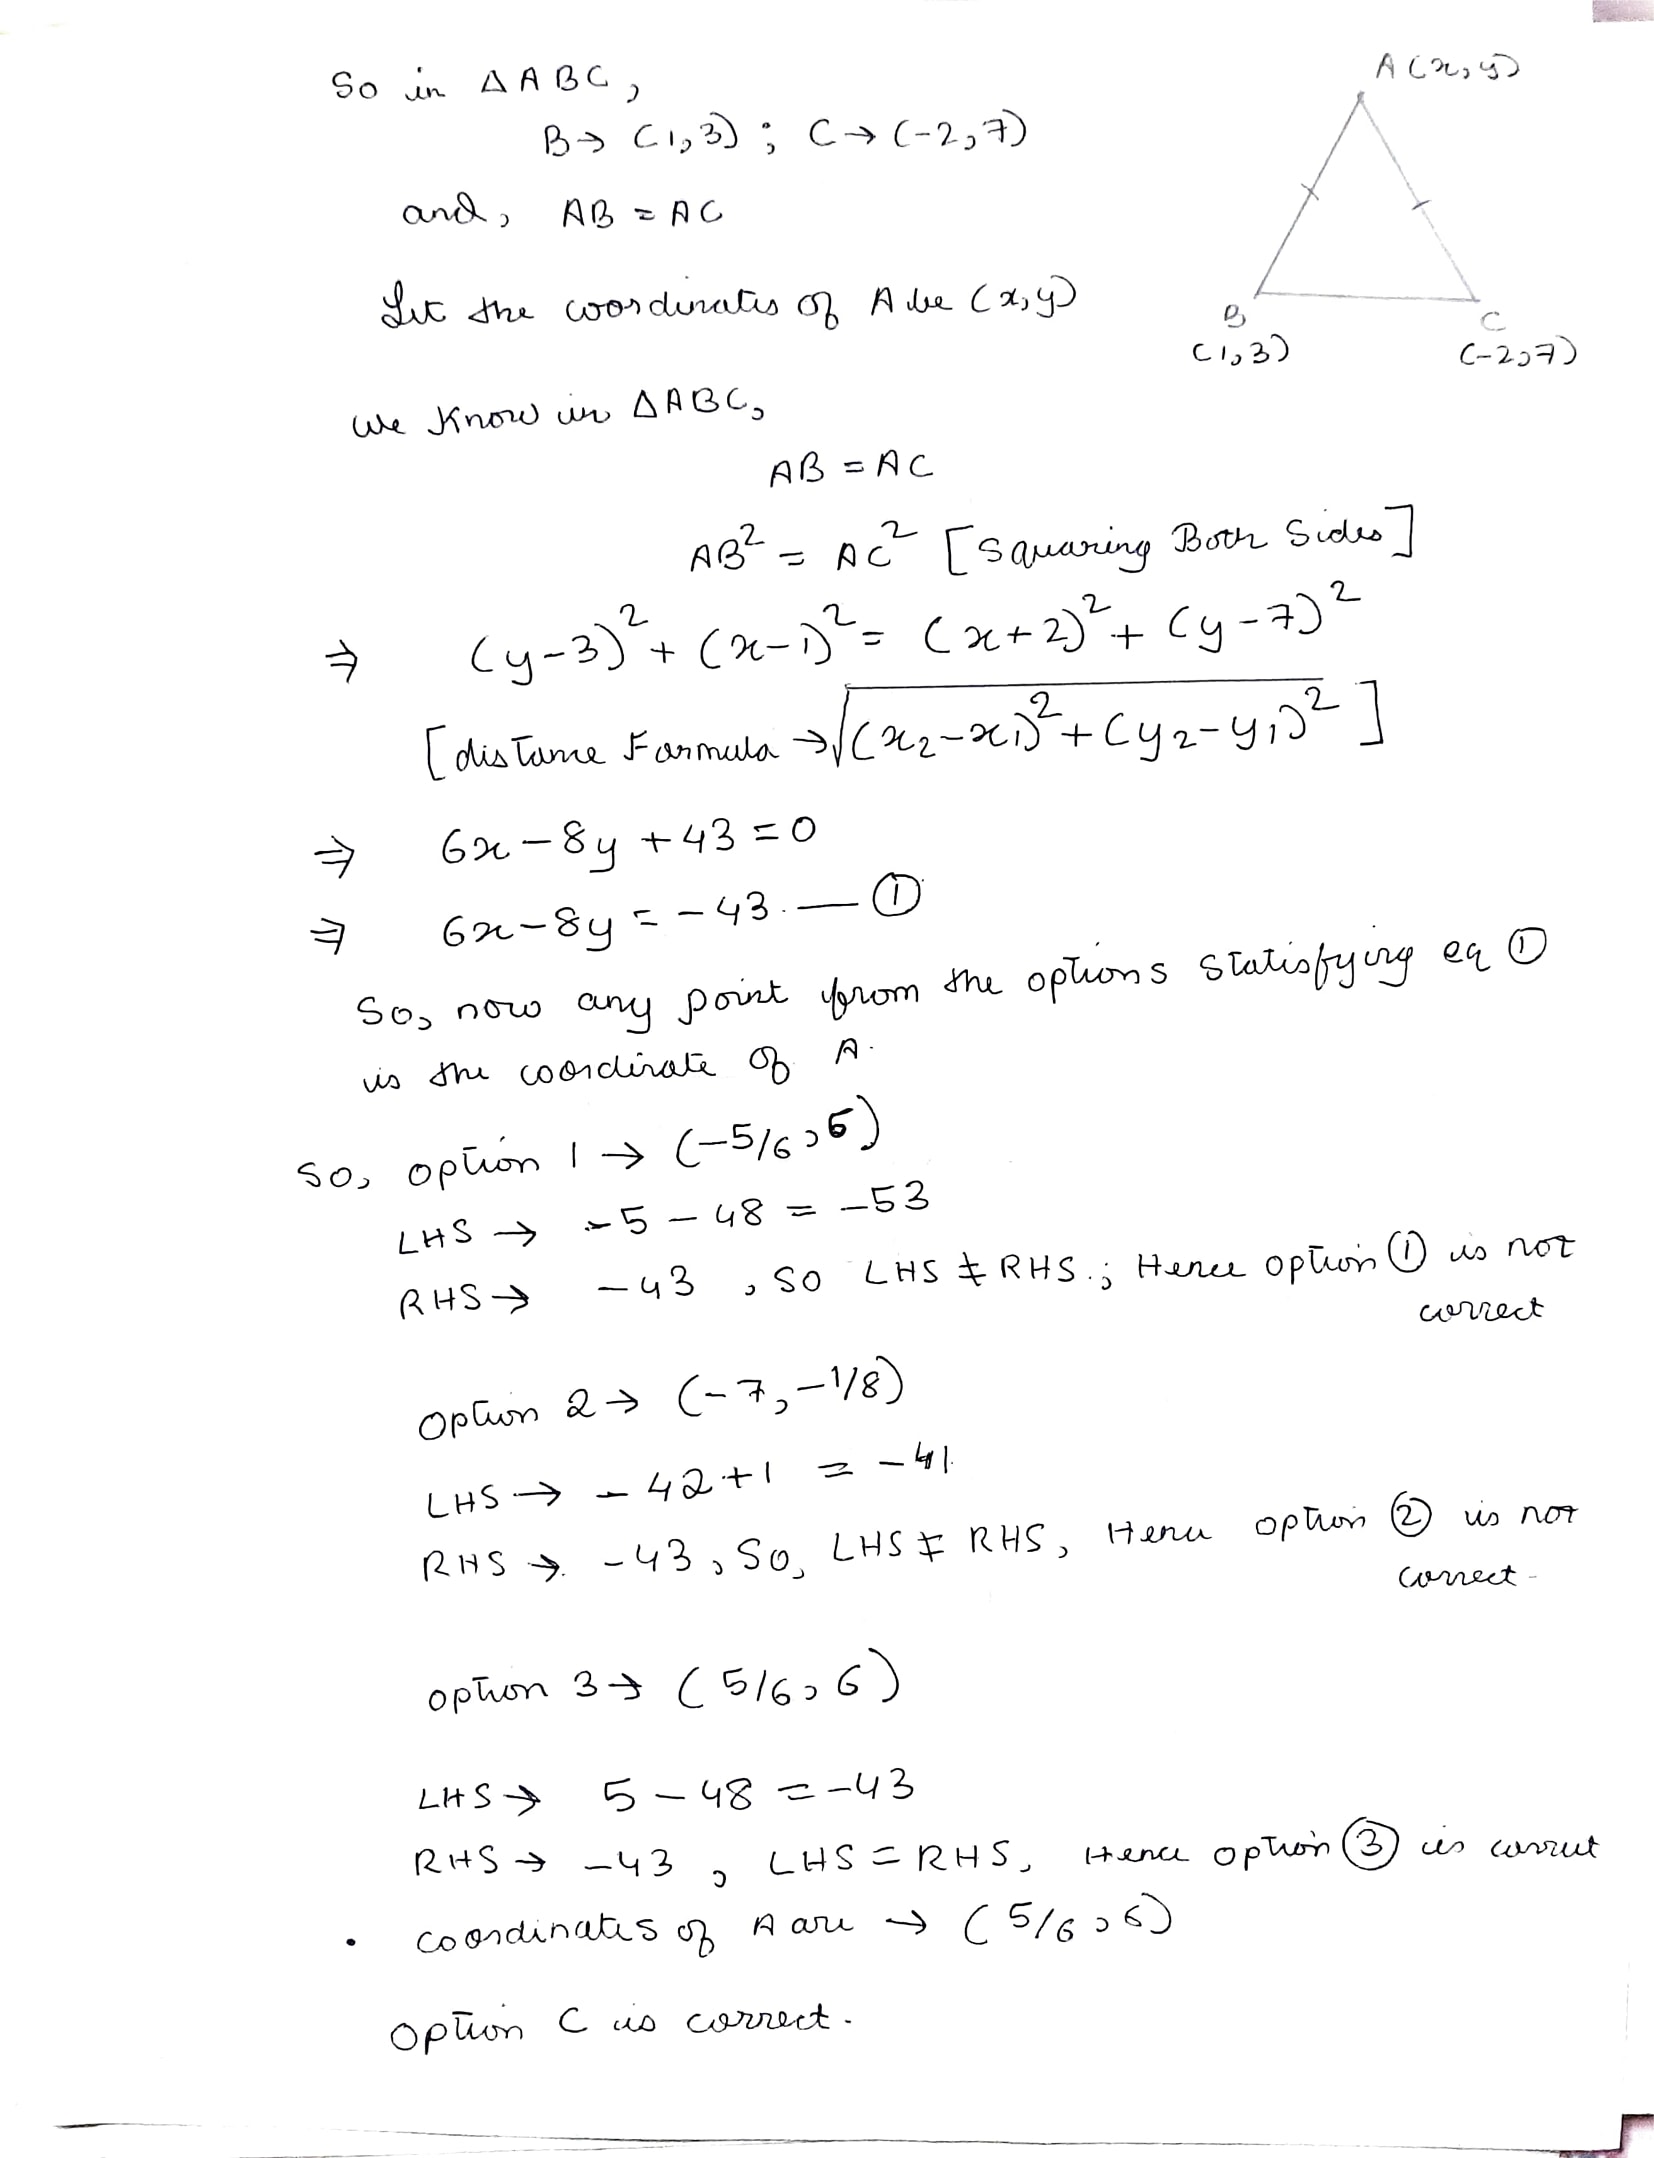 So in △ABC,
B→ (1,3) ; C→ (-2,7)
and, AB = AC
Let the coordinates of A be (x,y)
A (x,y)
B
(1,3)
C
(-2,7)
We Know in △ABC,
AB = AC
AB² = AC² [Squaring Both Sides]
⇒ (y-3)² + (x-1)² = (x+2)² + (y-7)²
[distance Formula → √(x₂-x₁)²+(y₂-y₁)² ]
⇒ 6x - 8y + 43 = 0
⇒ 6x - 8y = -43. — ①
So, now any point from the options statisfying eq ①
is the coordinate of A.
So, option 1 → (-5/6, 6)
LHS → -5 - 48 = -53
RHS → -43 , So LHS ≠ RHS.; Hence option ① is not
correct
Option 2 → (-7, -1/8)
LHS → -42+1 = -41.
RHS →. -43, So, LHS ≠ RHS, Hence option ② is not
correct-
option 3 → (5/6, 6)
LHS → 5 - 48 = -43
RHS → -43 , LHS = RHS, Hence option ③ is correct
• coordinates of A are → (5/6, 6)
Option C is correct.